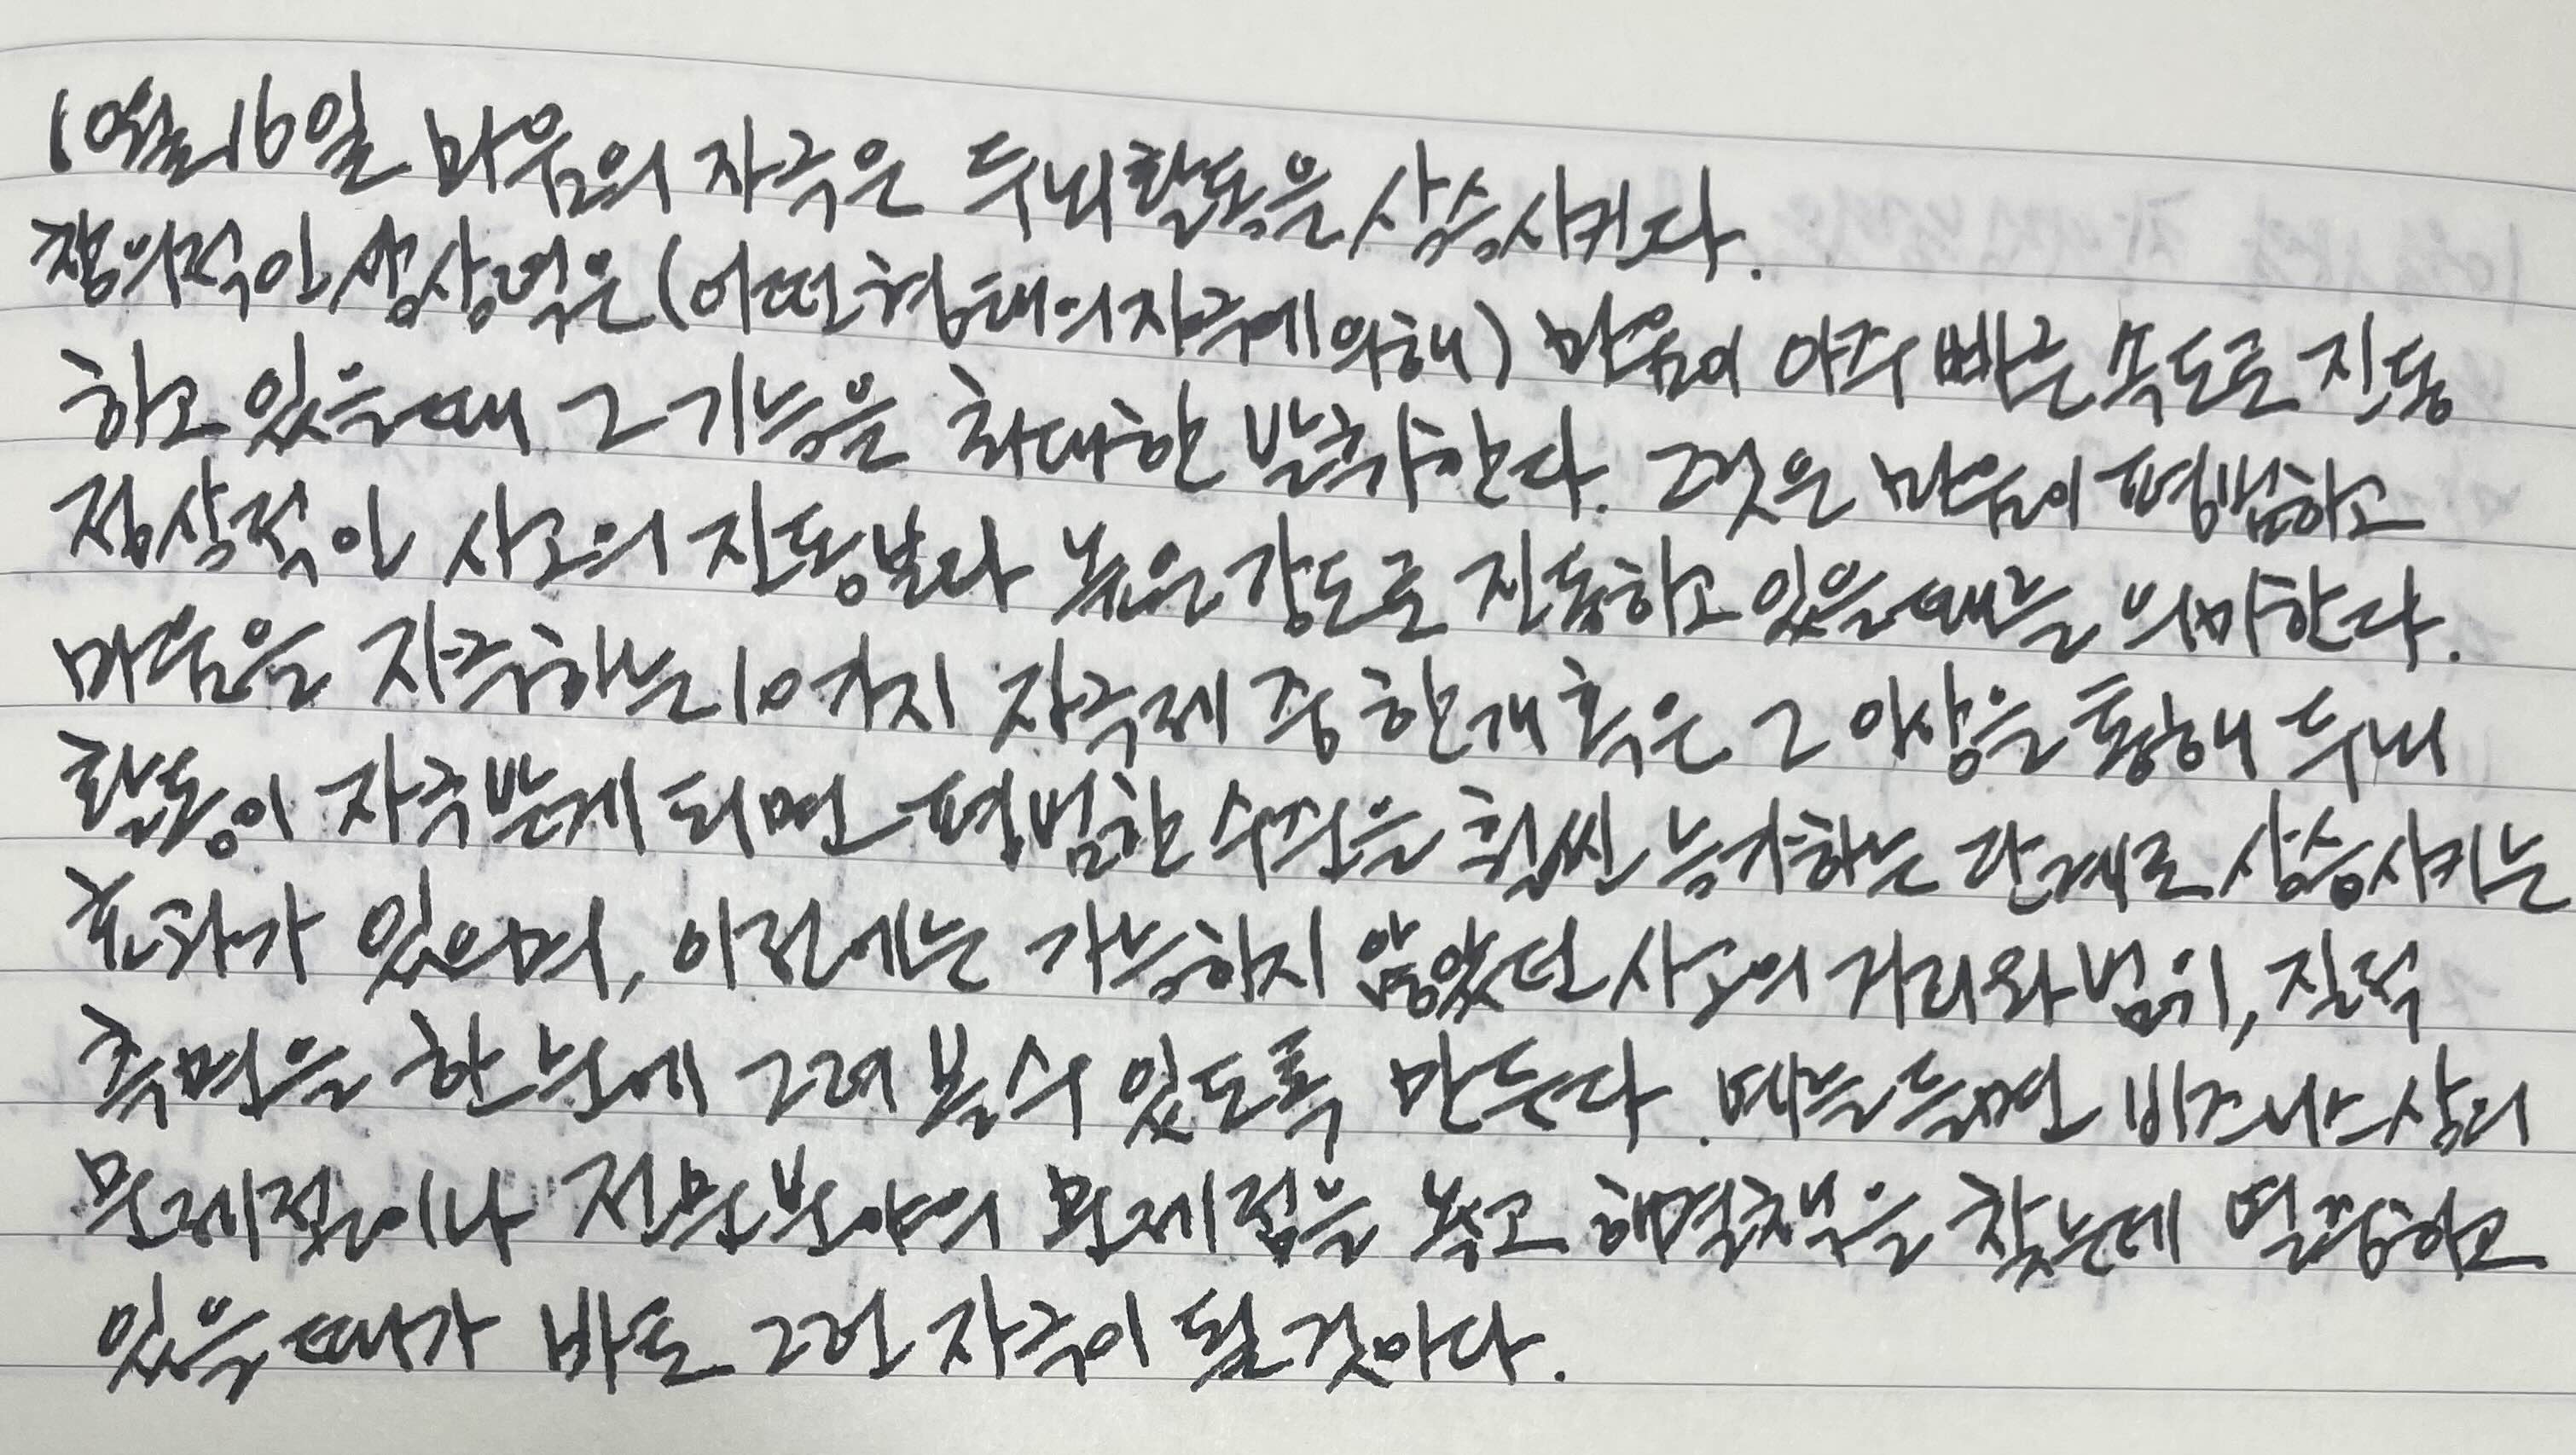 10월16일 마음의 자극은 두뇌활동을 상승시키다.
창의적인 상상력은 (어떤 형태의 자극에 의해) 마음이 아주 빠른 속도로 진동
하고 있을때 그 기능을 최대한 발휘한다. 그것은 마음이 평범하고
정상적인 사고의 진동보다 높은 강도로 진동하고 있을때를 의미한다.
마음을 자극하는 10가지 자극제 중 한개 혹은 그 이상을 통해 두뇌
활동이 자극받게 되면 평범한 수준을 훨씬 능가하는 단계로 상승시키는
효과가 있으며, 이전에는 가능하지 않았던 사고의 거리와 범위, 질적
측면을 한 눈에 그려 볼수 있도록 만든다. 예를들면 비즈니스상의
문제점이나 전문분야의 문제점을 놓고 해결책을 찾는데 열중하고
있을 때가 바로 그런 자극이 될것이다.